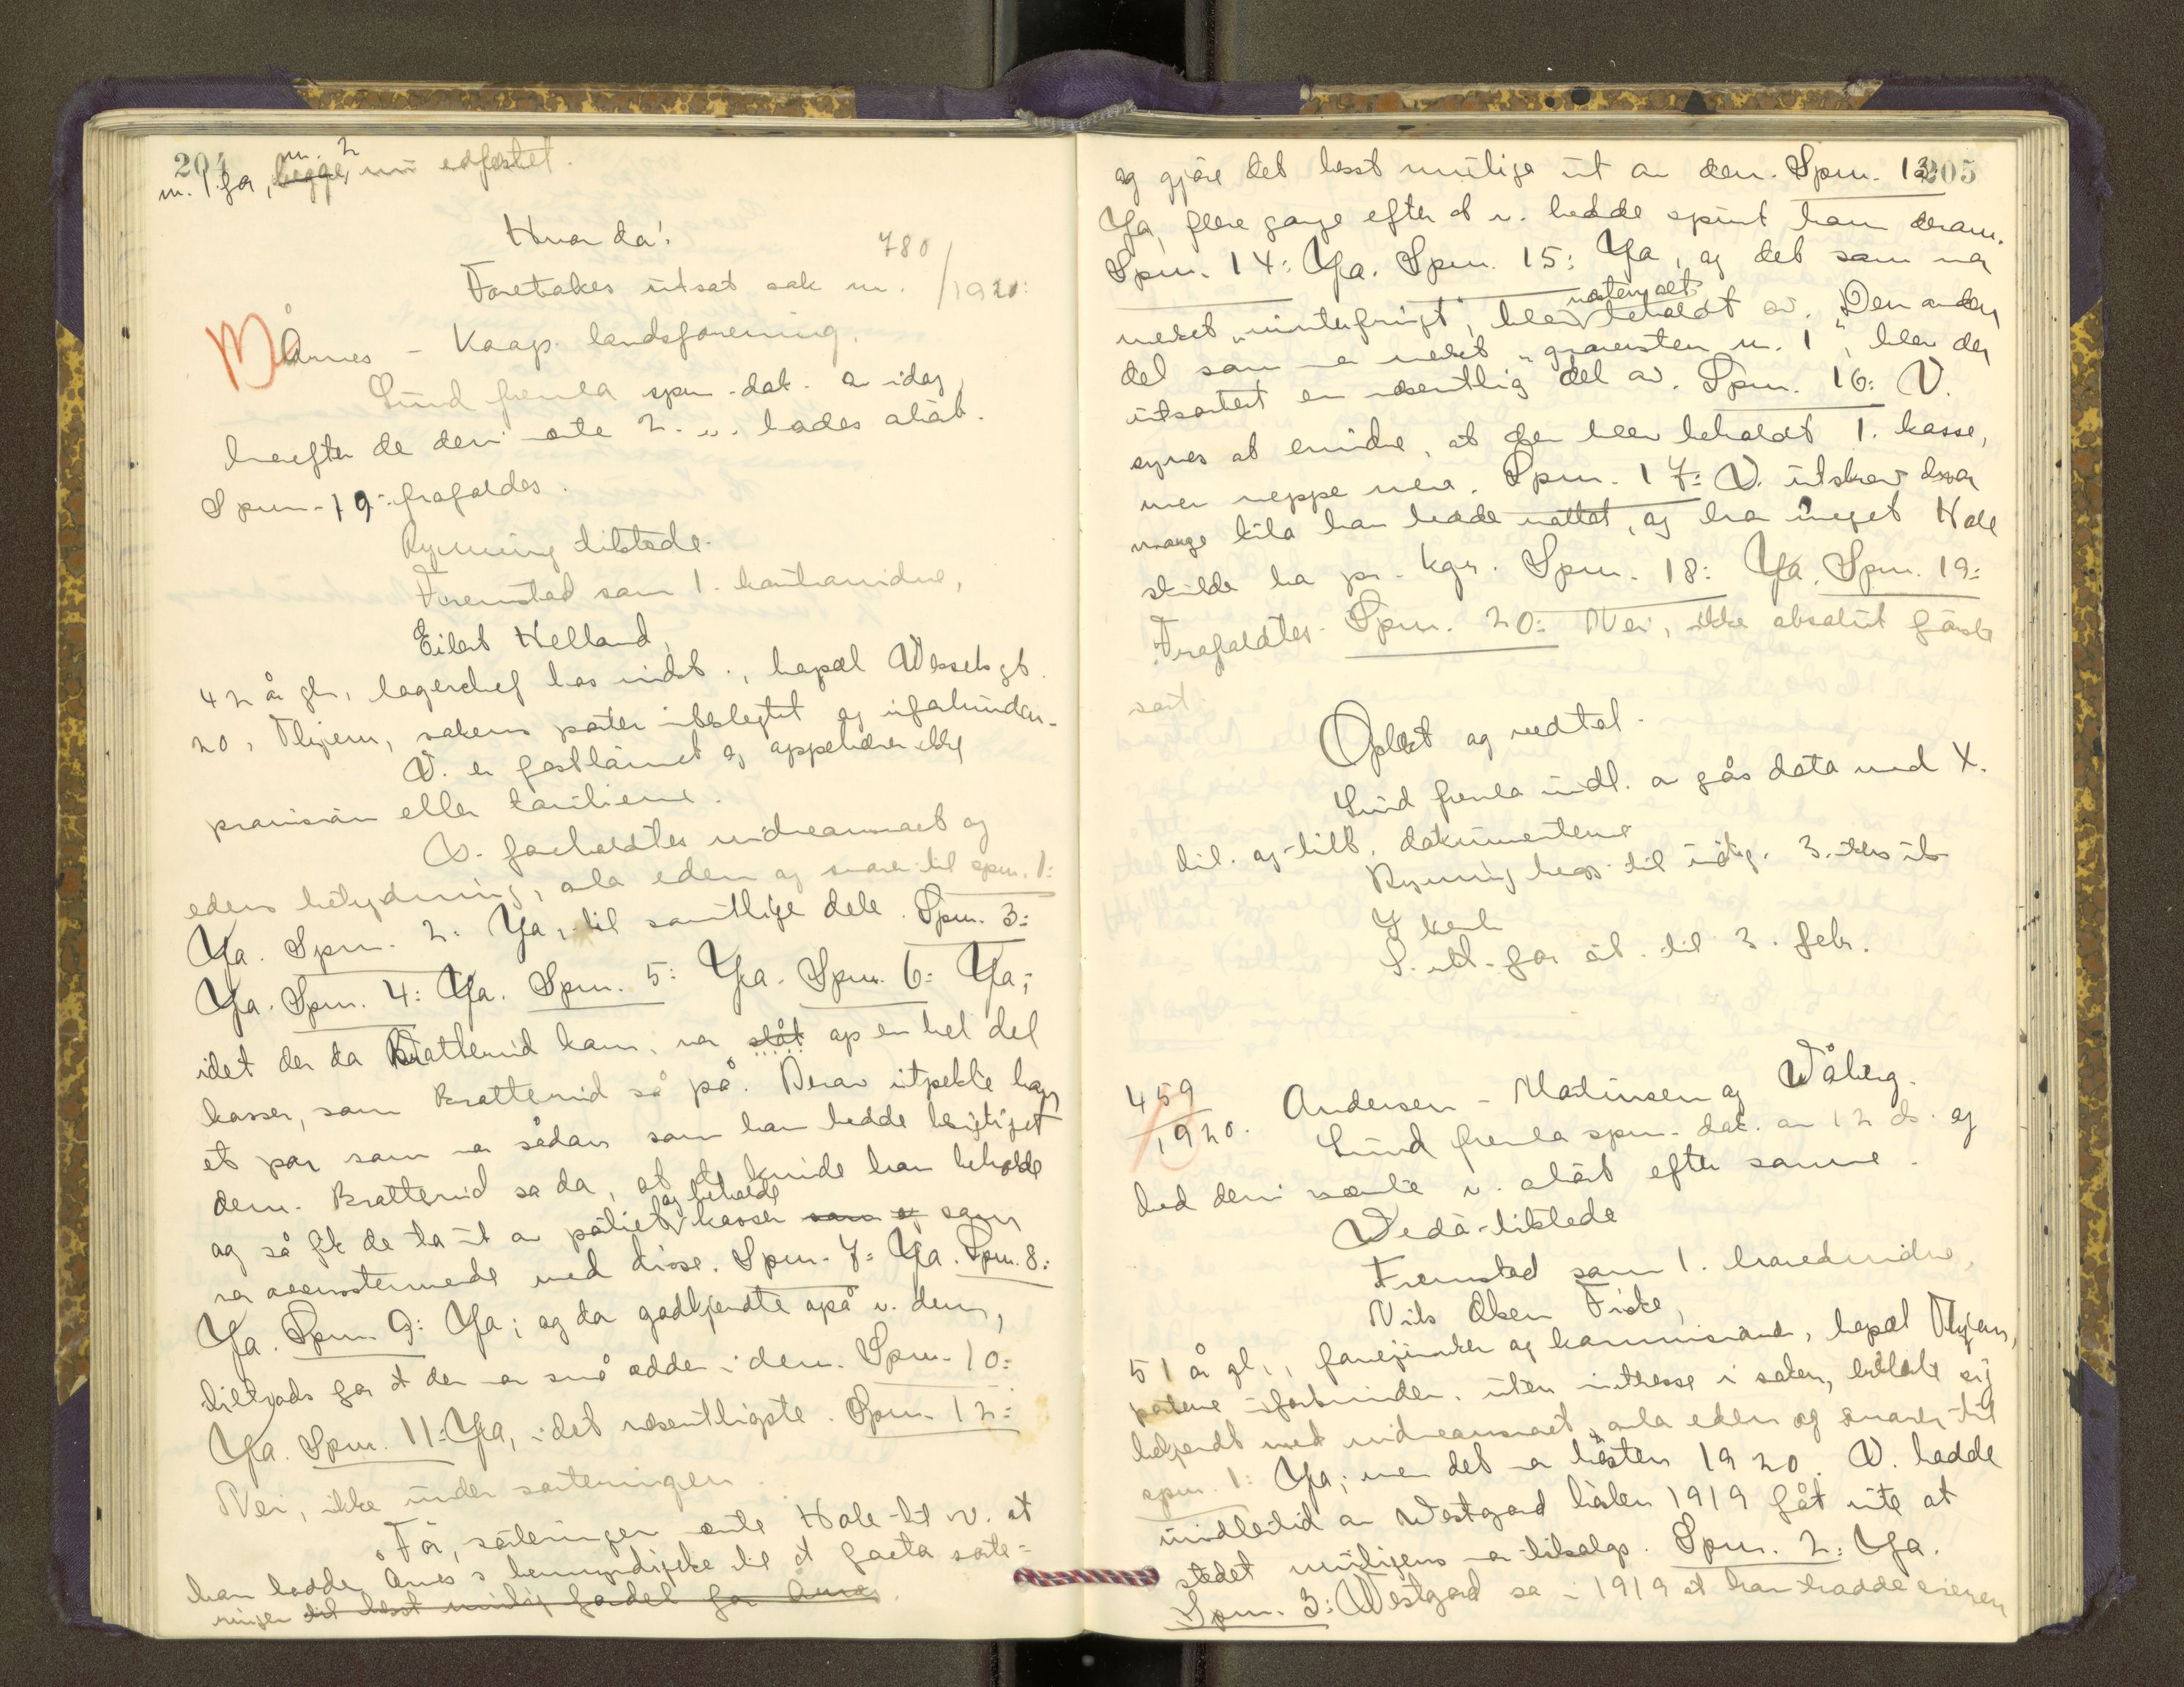 204
m. 1 for, begge, m. 2 nu edfestet.
Hvorda:
Foretakes utsat sak nr. 780/1920:
Årnes - Koop. landsforening.
Lund fremla spm. dat. av idag,
hvorefter de deri nte 2 v. bades avhørt.
Spm. 19 frafaldes.
Rynning tilstede.
Fremstod som 1. kontravidne,
Eilert Helland,
42 år gl., lagerchef hos indst., bopæl Wesselsgt.
20, Thjem, sakens parter ubeslegtet og uforbunden.
V. er fastlønnet og oppebærer ikke
provision eller tantieme.
V. foreholdtes vidneansvaret og
edens betydning, avla eden og svarer til spm. 1:
Ja. Spm. 2: Ja, til samtlige dele. Spm. 3:
Ja. Spm. 4: Ja. Spm. 5: Ja. Spm. 6: Ja;
idet der da Bratterud kom, var slåt op en hel del
kasser, som Bratterud så på. Derav utpekte han
et par som var sådan som han hadde besigtiget
dem. Bratterud sa da, at de kunde han beholde
og så fik de ta ut av partiet og beholde kasser som er som
var overensstemmende med disse. Spm. 7: Ja. Spm. 8:
Ja. Spm. 9: Ja; og da godkjendte også v. dem,
tiltrods for at der var små odder i dem. Spm. 10:
Ja. Spm. 11: Ja, i det væsentligste. Spm. 12:
Nei, ikke under sorteringen.
Før sorteringen nte Hole til v. at
han hadde Årnes's bemyndigelse til at foreta sorte-
ringen til best mulig fordel for Årnes.
205
og gjøre det best mulige ut av den. Spm. 13:
Ja, flere gange efter at v. hadde spurt ham derom.
Spm. 14: Ja. Spm. 15: Ja, og det som var
merket "vinterfrugt", blev næsten alt beholdt av. Den anden
del som var merket "gravensten nr. 1", blev der
utsortert en væsentlig del av. Spm. 16: V.
synes at erindre, at der blev beholdt 1 kasse,
men neppe mer. Spm. 17: V. utskrev hvor
mange kilo han hadde mottat, og hvor meget Hole
skulde ha pr. kgr. Spm. 18: Ja. Spm. 19:
Frafaldtes. Spm. 20: Nei, ikke absolut første
sort.
Oplest og vedtat.
Lund fremla indl. av gårs dato med X.
bil. og tilb. dokumentene
Rynning begj. til indlg. 3. ukers uts
S. uts. for øvt. til 3. febr.
459/1920. Andersen - Martinsen og Wåberg.
Lund fremla spm. dat. av 12 ds. og
bad deri nævnte v. avhørt efter samme.
Wedø tilstede
Fremstod som 1. hovedvidne,
Nils Olsen Fiske,
51 år gl., fanejunker og kommissionær, bopæl Thjem,
partene uforbunden, uten interesse i saken, erklærte sig
bekjendt med vidneansvaret, avla eden og svarer til
spm. 1: Ja; men det var høsten 1920. V. hadde
imidlertid av Westgård høsten 1919 fåt vite at
stedet muligens var tilsalgs. Spm. 2: Ja.
Spm. 3: Westgård sa i 1919 at han hadde eieren